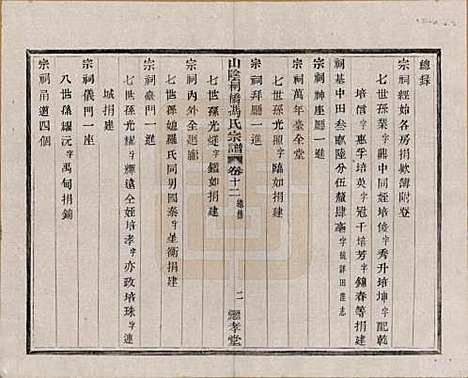 總錄
宗祠經始各房捐欵簿附登
七世孫業字龍中同姪培俊字秀升培坤字配乾
培信字惠孚培英字冠千培芳字錦春等捐建
祠基中田叁畝陸分伍釐肆毫字號詳田產志
宗祠神座廳一進
宗祠萬年臺全堂
七世孫光照字臨如捐建
宗祠拜廳一進
山陰桐橋馮氏宗譜 卷十二 總錄 二 繼孝堂
七世孫光鑑字鑑如捐建
宗祠內外全廊
七世孫媳羅氏同男國泰字星衡捐建
宗祠臺門一進
七世孫光耀字輝遠仝姪培孝字亦政培珠字連
城捐建
宗祠儀門一座
八世孫耀沅字禹甸捐錀
宗祠甬道四個